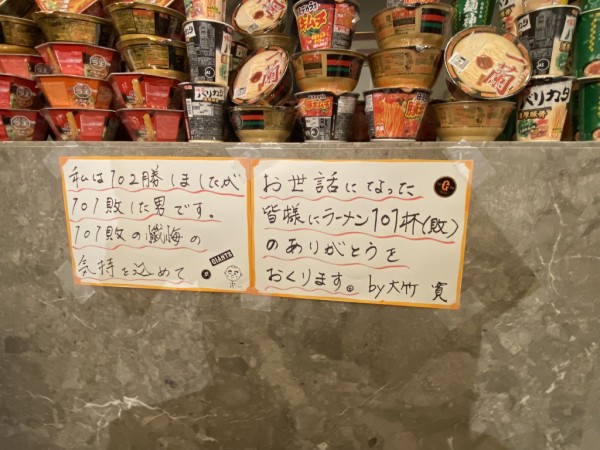 私は102勝しましたが
101敗した男です。
101敗の懺悔の
気持を込めて
GIANTS
お世話になった
皆様にラーメン101杯(敗)
のありがとうを
おくります。
by大竹 寛
G
一蘭
バリカタ
キムチ